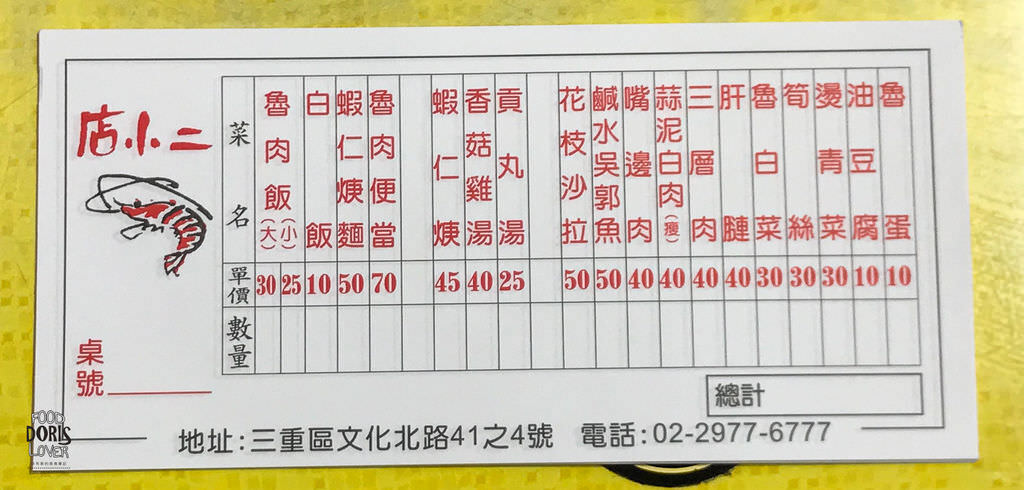 店小二
桌號
菜名 單價 數量
魯肉飯(大) 30
(小) 25
白飯 10
蝦仁焿麵 50
魯肉便當 70
蝦仁焿 45
香菇雞湯 40
貢丸湯 25
花枝沙拉 50
鹹水吳郭魚 50
嘴邊肉 40
蒜泥白肉(瘦) 40
三層肉 40
肝腱 40
魯白菜 30
筍絲 30
燙青菜 30
油豆腐 10
魯蛋 10
總計
地址:三重區文化北路41之4號 電話:02-2977-6777
FOOD
DORIS
LOVER